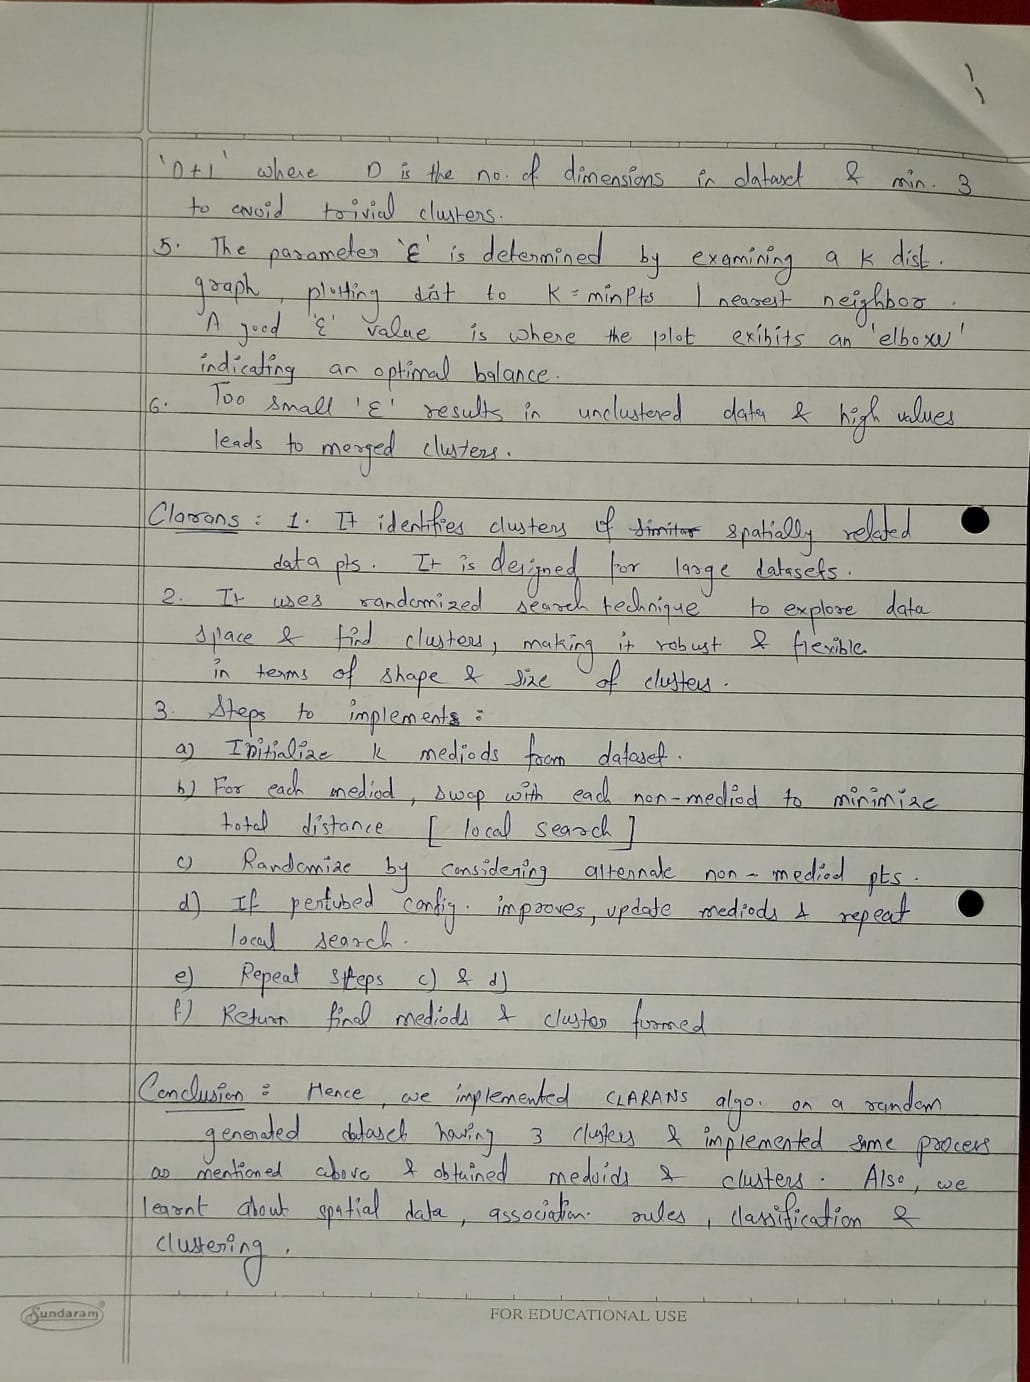 'D+1' where D is the no. of dimensions in dataset & min. 3
to avoid trivial clusters.
5. The parameter 'ε' is determined by examining a k dist.
graph, plotting dist to K = minPts 1 nearest neighbor.
A good 'ε' value is where the plot exibits an 'elboxw'
indicating an optimal balance.
6. Too small 'ε' results in unclustered data & high values
leads to merged clusters.
Clarans : 1. It identifies clusters of similar spatially related
data pts. It is designed for large datasets.
2. It uses randomized search technique to explore data
space & find clusters, making it robust & flexible
in terms of shape & size of clusters.
3. Steps to implements :
a) Initialize k mediods from dataset.
b) For each mediod, swap with each non-mediod to minimize
total distance [ local search ]
c) Randomize by considering alternate non-mediod pts.
d) If pertubed config. improves, update mediods & repeat
local search.
e) Repeat steps c) & d)
f) Return final mediods & cluster formed
Conclusion : Hence, we implemented CLARANS algo. on a random
generated dataset having 3 clusters & implemented same process
as mentioned above & obtained medoids & clusters. Also, we
learnt about spatial data, association rules, classification &
clustering.
Sundaram
FOR EDUCATIONAL USE